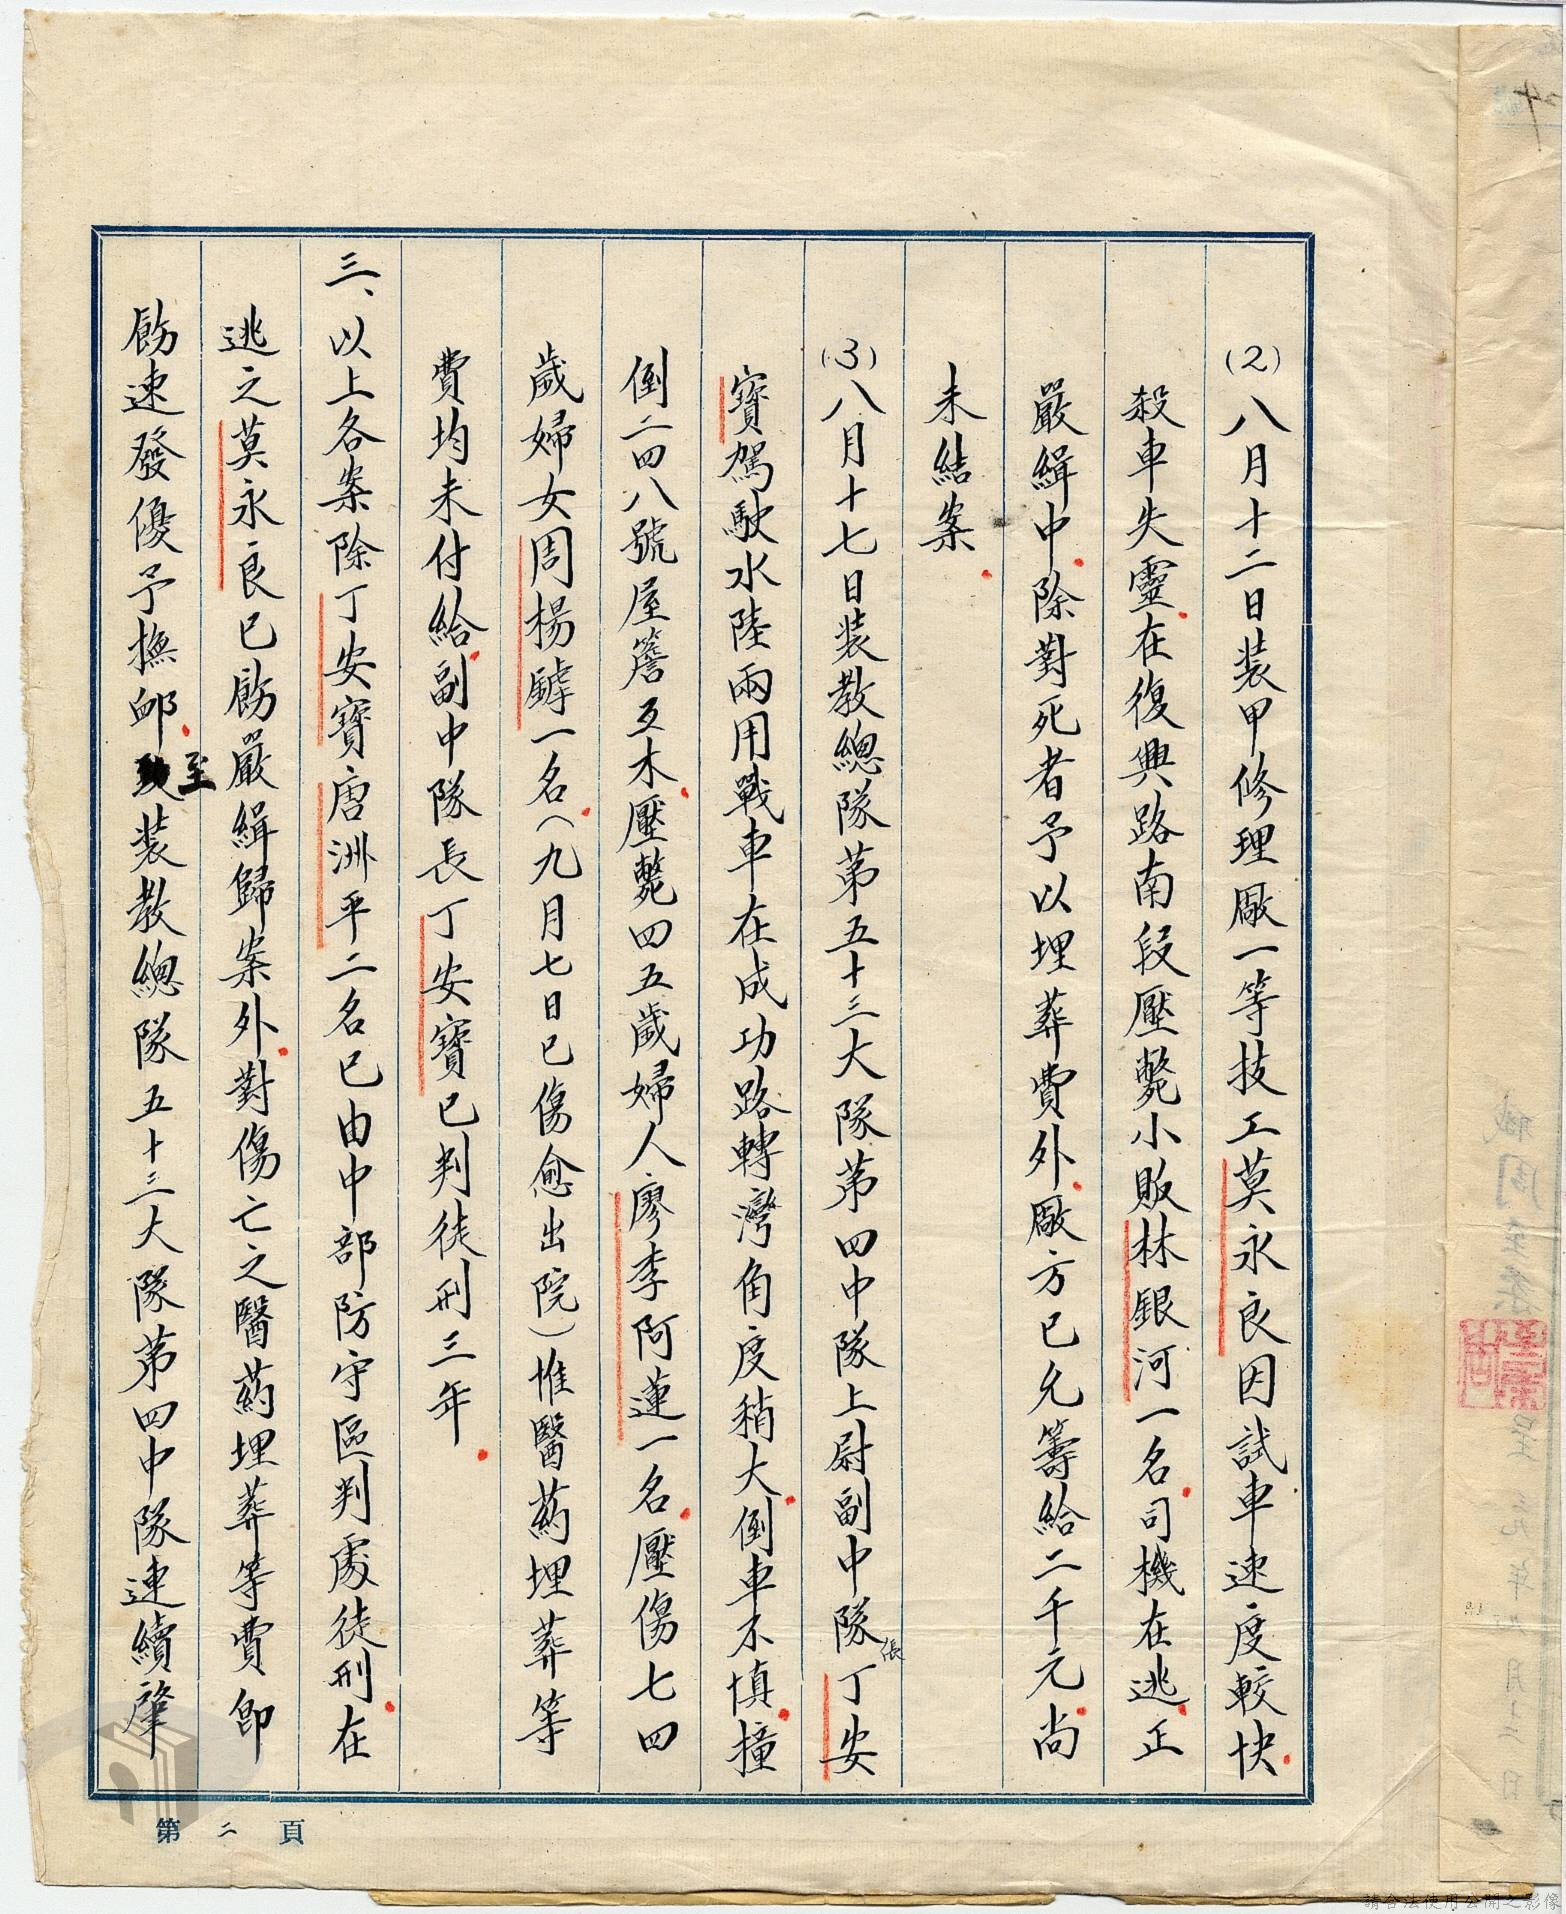 (2)八月十二日裝甲修理廠一等技工莫永良因試車速度較快
殺車失靈在復興路南段壓斃小販林銀河一名司機在逃正
嚴緝中除對死者予以埋葬費外廠方已允籌給二千元尚
未結案
(3)八月十七日裝教總隊第五十三大隊第四中隊上尉副中隊張丁安
寶駕駛水陸兩用戰車在成功路轉灣角度稍大倒車不慎撞
倒二四八號屋簷及木壓斃四五歲婦人廖李阿蓮一名壓傷七四
歲婦女周楊罅一名(九月七日已傷愈出院)惟醫葯埋葬等
費均未付給副中隊長丁安寶已判徒刑三年
三、以上各案除丁安寶唐洲平二名已由中部防守區判處徒刑在
逃之莫永良已飭嚴緝歸案外對傷亡之醫葯埋葬等費即
飭速發優予撫卹至裝教總隊五十三大隊第四中隊連續肇
第二頁
請合法使用公開之影像